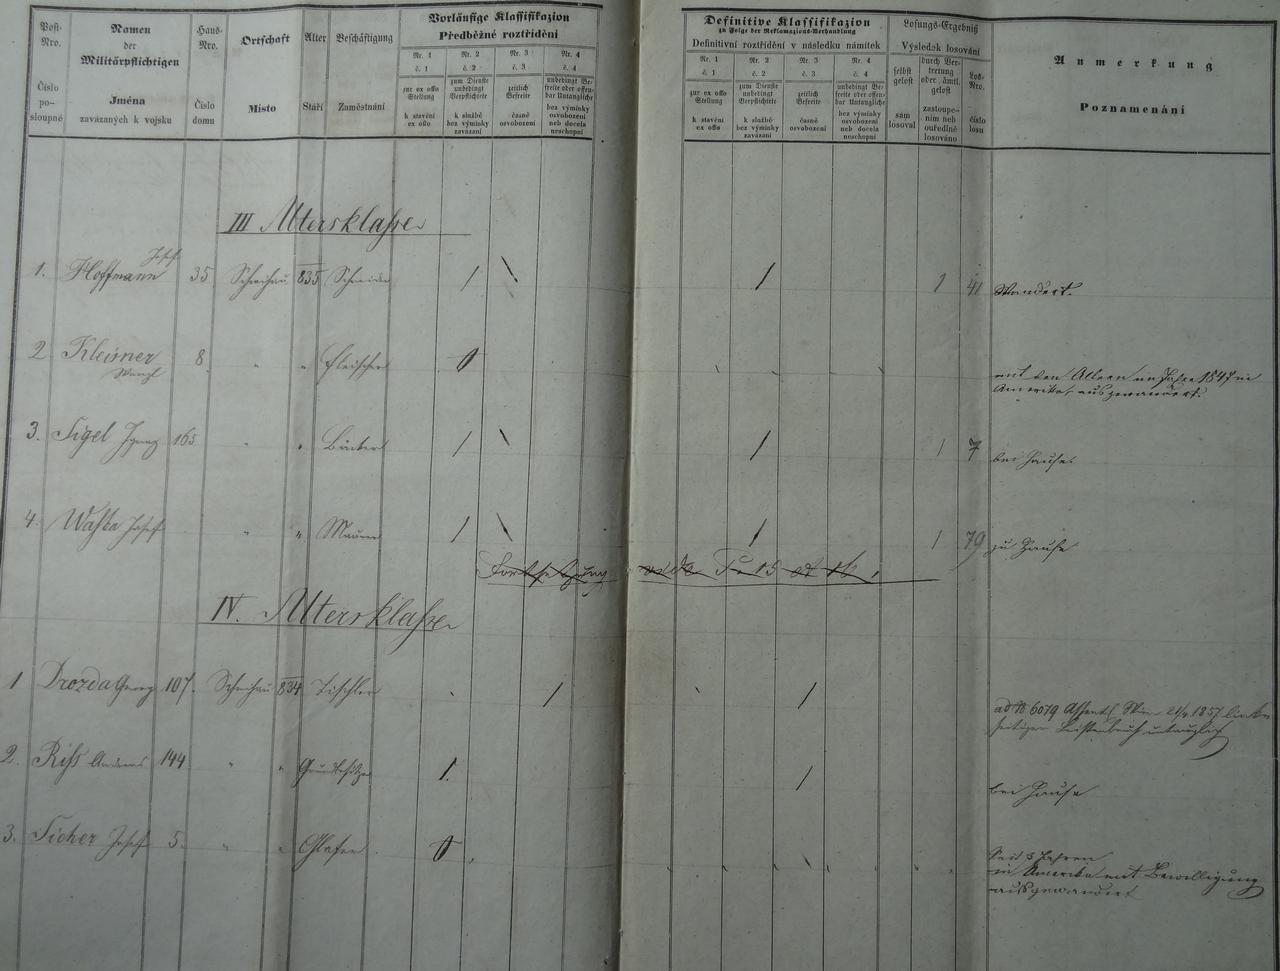 Post- Nro.
Číslo po- sloupné
Namen der Militärpflichtigen
Jména zavázaných k vojsku
Haus- Nro.
Číslo domu
Ortschaft
Místo
Alter
Stáří
Beschäftigung
Zaměstnání
Vorläufige Klassifikazion
Předběžné roztřídění
Nr. 1
č. 1
zur ex offo Stellung
k stavění ex offo
Nr. 2
č. 2
zum Dienste unbedingt Verpflichtete
k službě bez výminky zavázaní
Nr. 3
č. 3
zeitlich Befreite
časně osvobození
Nr. 4
č. 4
unbedingt Be- freite oder offen- bar Untaugliche
bez výminky osvobození neb docela neschopní
Definitive Klassifikazion
zu Folge der Reklamazions-Verhandlung
Definitivní roztřídění v následku námitek
Nr. 1
č. 1
zur ex offo Stellung
k stavění ex offo
Nr. 2
č. 2
zum Dienste unbedingt Verpflichtete
k službě bez výminky zavázaní
Nr. 3
č. 3
zeitlich Befreite
časně osvobození
Nr. 4
č. 4
unbedingt Be- freite oder offen- bar Untaugliche
bez výminky osvobození neb docela neschopní
Losungs-Ergebniß
Výsledek losování
selbst gelost
sám losoval
durch Ver- tretung oder ämtl. gelost
zastoupe- ním neb ouředlně losováno
Los- Nro.
číslo losu
Anmerkung
Poznamenání
III Altersklasse
1. Hoffmann 35 835 1 41
2 Kleisner Wenzl 8 " " Fleischer 0 mit den Altern im Jahre 1847 in
Amerika ausgewandert.
3. Sigel Ignaz 165 " " Bäcker 1 7 bei Hause.
4. Waska Josef " " Maurer 1 79 zu Hause
Fortsetzung vide
IV. Altersklasse
1 Drozda Georg 107. 834 Tischler
ad 6079 1857 links
seitigen Leistenbruch untauglich
2. Riss Andreas 144 " " Grundbesitzer bei Hause
3. Sicher Josef 5. " " Glaser 0
Seit 3 Jahren
in Amerika mit Bewilligung
ausgewandert